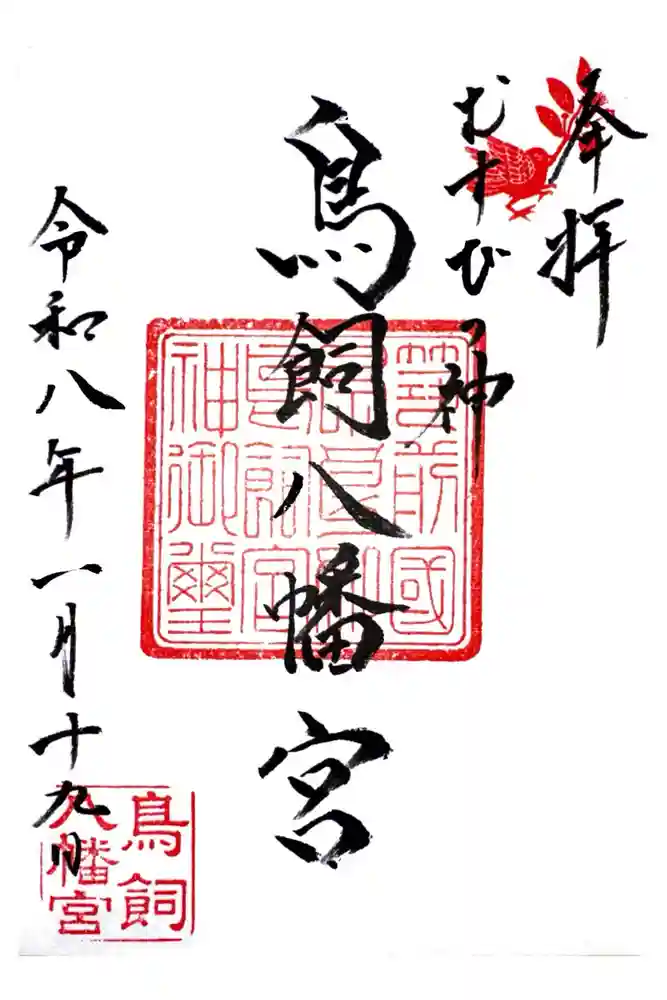 奉拝
むすびの神
鳥飼八幡宮
令和八年一月十九日
筑前國
神御璽
鳥飼
八幡宮